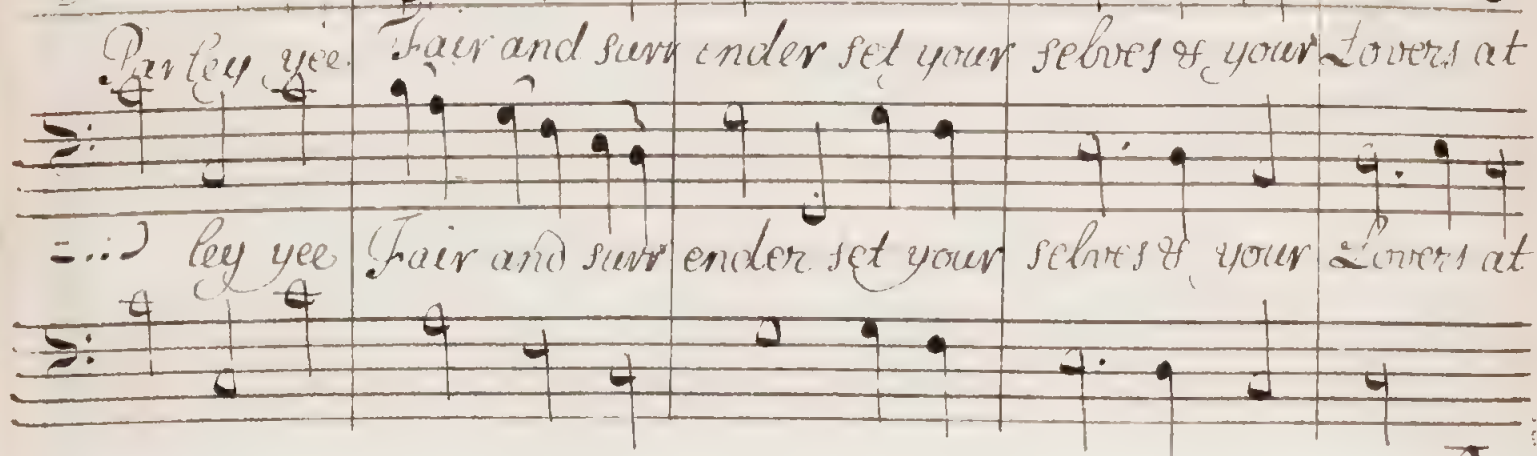 Parley yee Fair and surr ender set your selves & your Lovers at
ley yee Fair and surr ender set your selves & your Lovers at